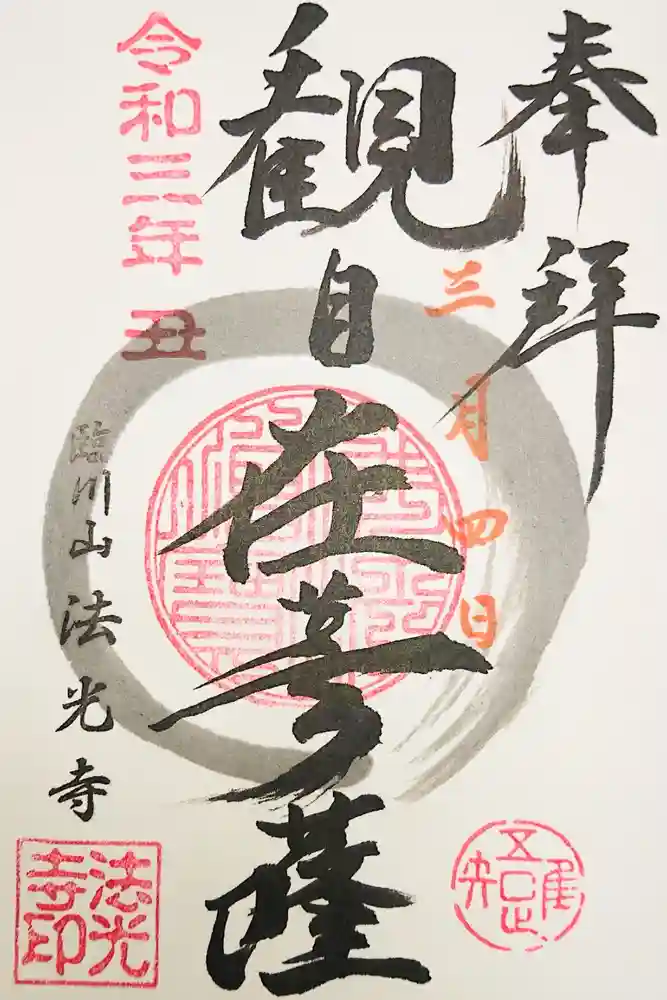 奉拝
三月四日
観自在菩薩
令和三年 丑
臨川山 法光寺
法光寺印